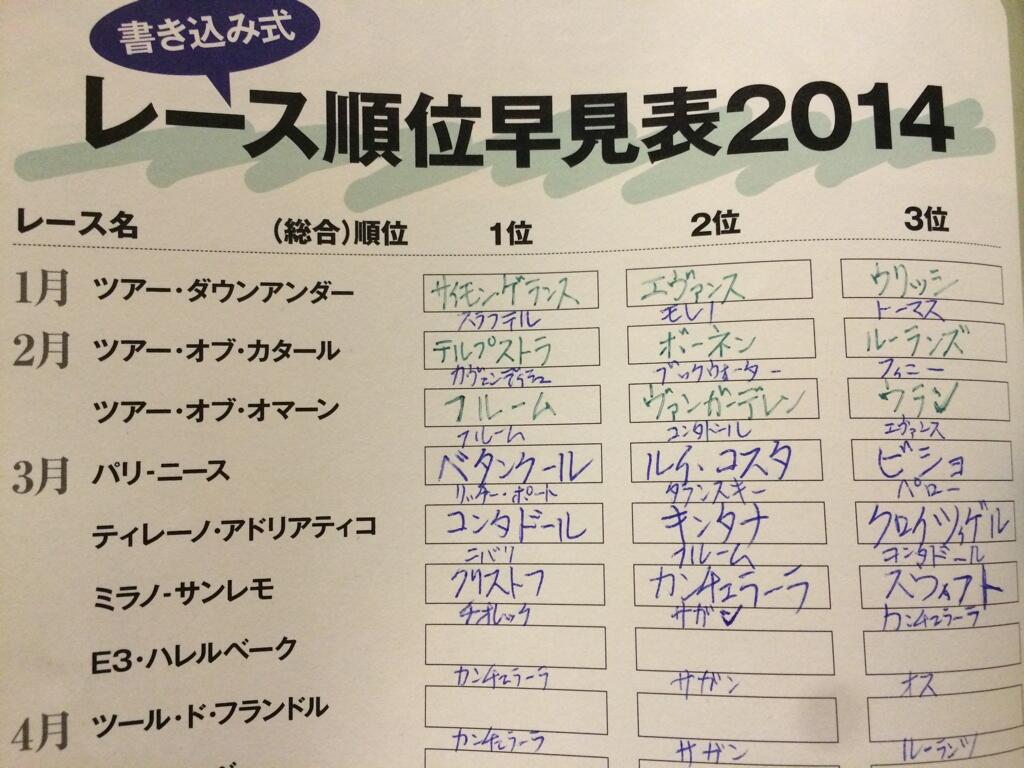 書き込み式
レース順位早見表2014
レース名 (総合)順位 1位 2位 3位
1月 ツアー・ダウンアンダー サイモンゲランス エヴァンス ウリッシ
スラフテル モレノ トーマス
2月 ツアー・オブ・カタール テルプストラ ボーネン ルーランズ
カヴェンディシュ ブックウォーター フィニー
ツアー・オブ・オマーン フルーム ヴァンガーデレン ウラン
フルーム コンタドール エヴァンス
3月 パリ-ニース ベタンクール ルイ・コスタ ビショ
リッチー・ポート タランスキー ペロー
ティレーノ・アドリアティコ コンタドール キンタナ クロイツィゲル
ニバリ フルーム コンタドール
ミラノ-サンレモ クリストフ カンチェラーラ スウィフト
チオレック サガン カンチェラーラ
E3・ハレルベーク
カンチェラーラ サガン オス
4月 ツール・ド・フランドル
カンチェラーラ サガン ルーランツ